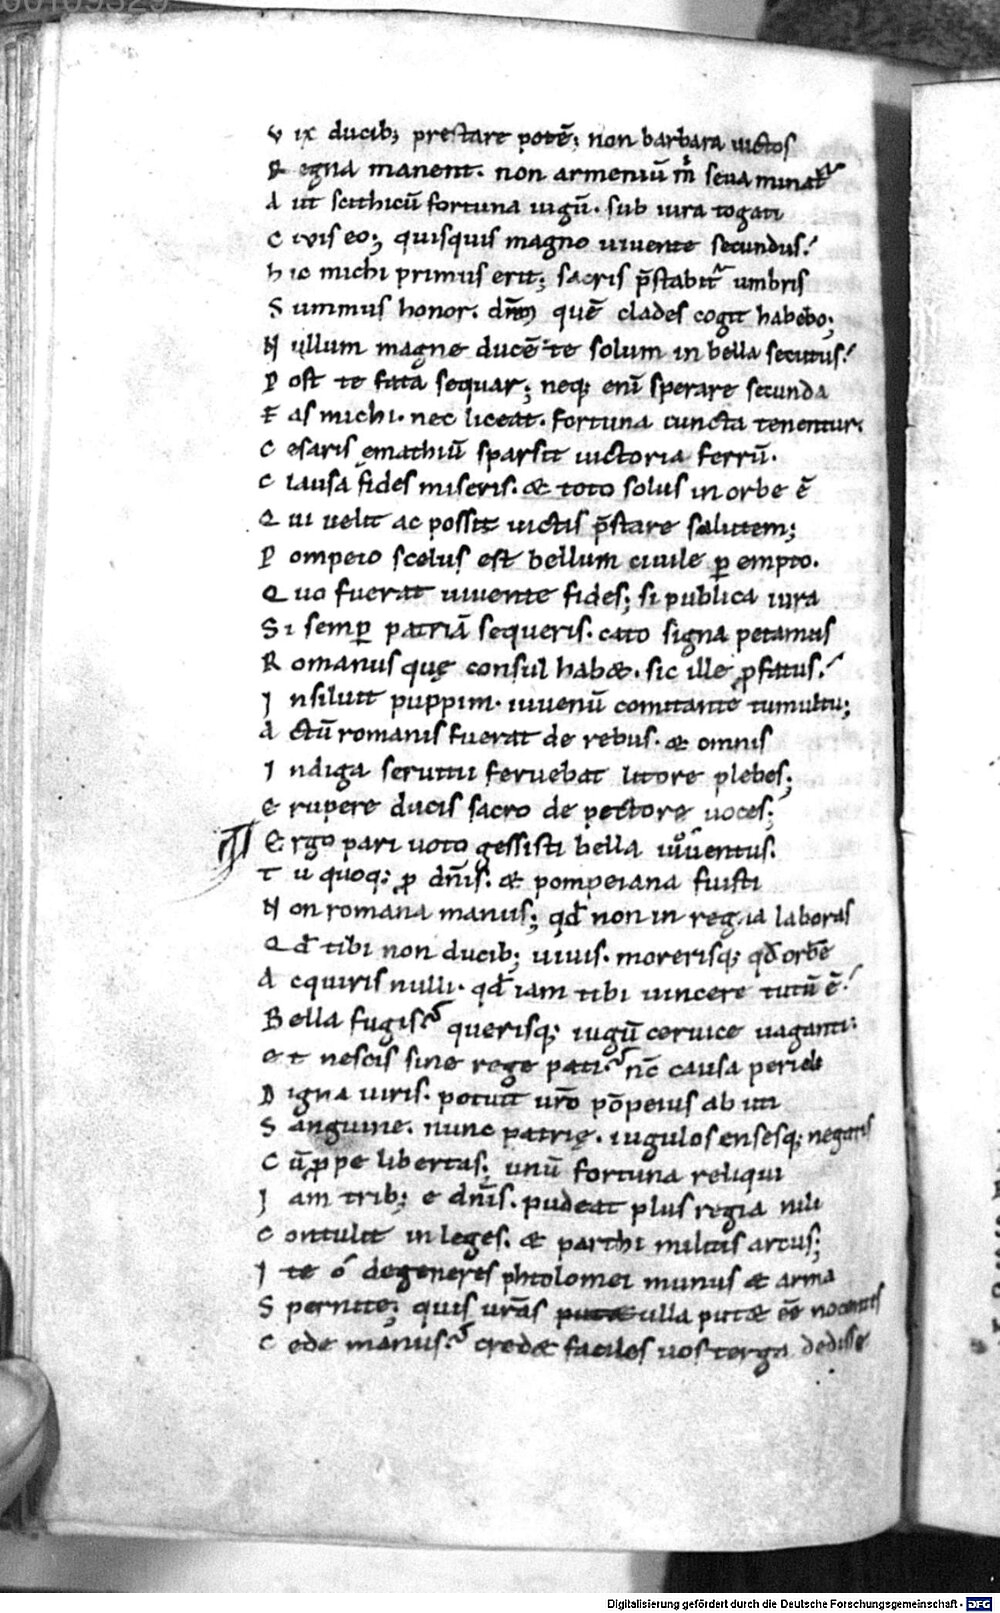 00109329
V ix ducib; prestare potẽ; non barbara uictos
R egna manent. non armeniũ m̃ seua minat᷑
A ut scithicũ fortuna iugũ. sub iura togati
C iuis eo; quisquis magno uiuente secundus.
h ic michi primus erit; sacris p̃stabit᷑ umbris
S ummus honor. dñm quẽ clades cogit habebo;
N ullum magne ducẽ te solum in bella secutus.
P ost te fata sequar; neq; eni sperare secunda
F as michi. nec liceat. fortuna cuncta tenentur.
C esaris emathiũ sparsit uictoria ferrũ.
C lausa fides miseris. & toto solus in orbe ẽ
Q ui uelit ac possit uictis p̃stare salutem;
P ompeio scelus est bellum ciuile ꝑ empto.
Q uo fuerat uiuente fides; si publica iura
S i semꝑ patriã sequeris. cato signa petamus
R omanus quę consul hab&. sic ille ꝓfatus.
I nsiluit puppim. iuuenũ comitante tumultu;
A ctũ romanis fuerat de rebus. & omnis
I ndiga seruitii feruebat litore plebes;
E rupere ducis sacro de pectore uoces;
E rgo pari uoto gessisti bella iuuentus.
T u quoq; ꝓ dñis. & pompeiana fuisti
N on romana manus; qđ non in regna laboras
Q đ tibi non ducib; uiuis. morerisq; qđ orbẽ
A cquiris nulli. qđ iam tibi uincere tutũ ẽ.
B ella fugis? querisq; iugũ ceruice uaganti:
e t nescis sine rege pati.? nc̃ causa pericli
D igna uiris. potuit uro põpeius ab uti
S anguine. nunc patrię. iugulos ensesq; negatis
C ũ ꝓpe libertas; unũ fortuna reliqui
I am trib; e dñis. pudeat plus regia nili
C ontulit in leges. & parthi militis arcus;
I te ó degeneres phtolomei munus & arma
S pernite; quis urãs ulla put& eẽ nocentis
C ede manus? cred& faciles uos terga dedisse
Digitalisierung gefördert durch die Deutsche Forschungsgemeinschaft - DFG